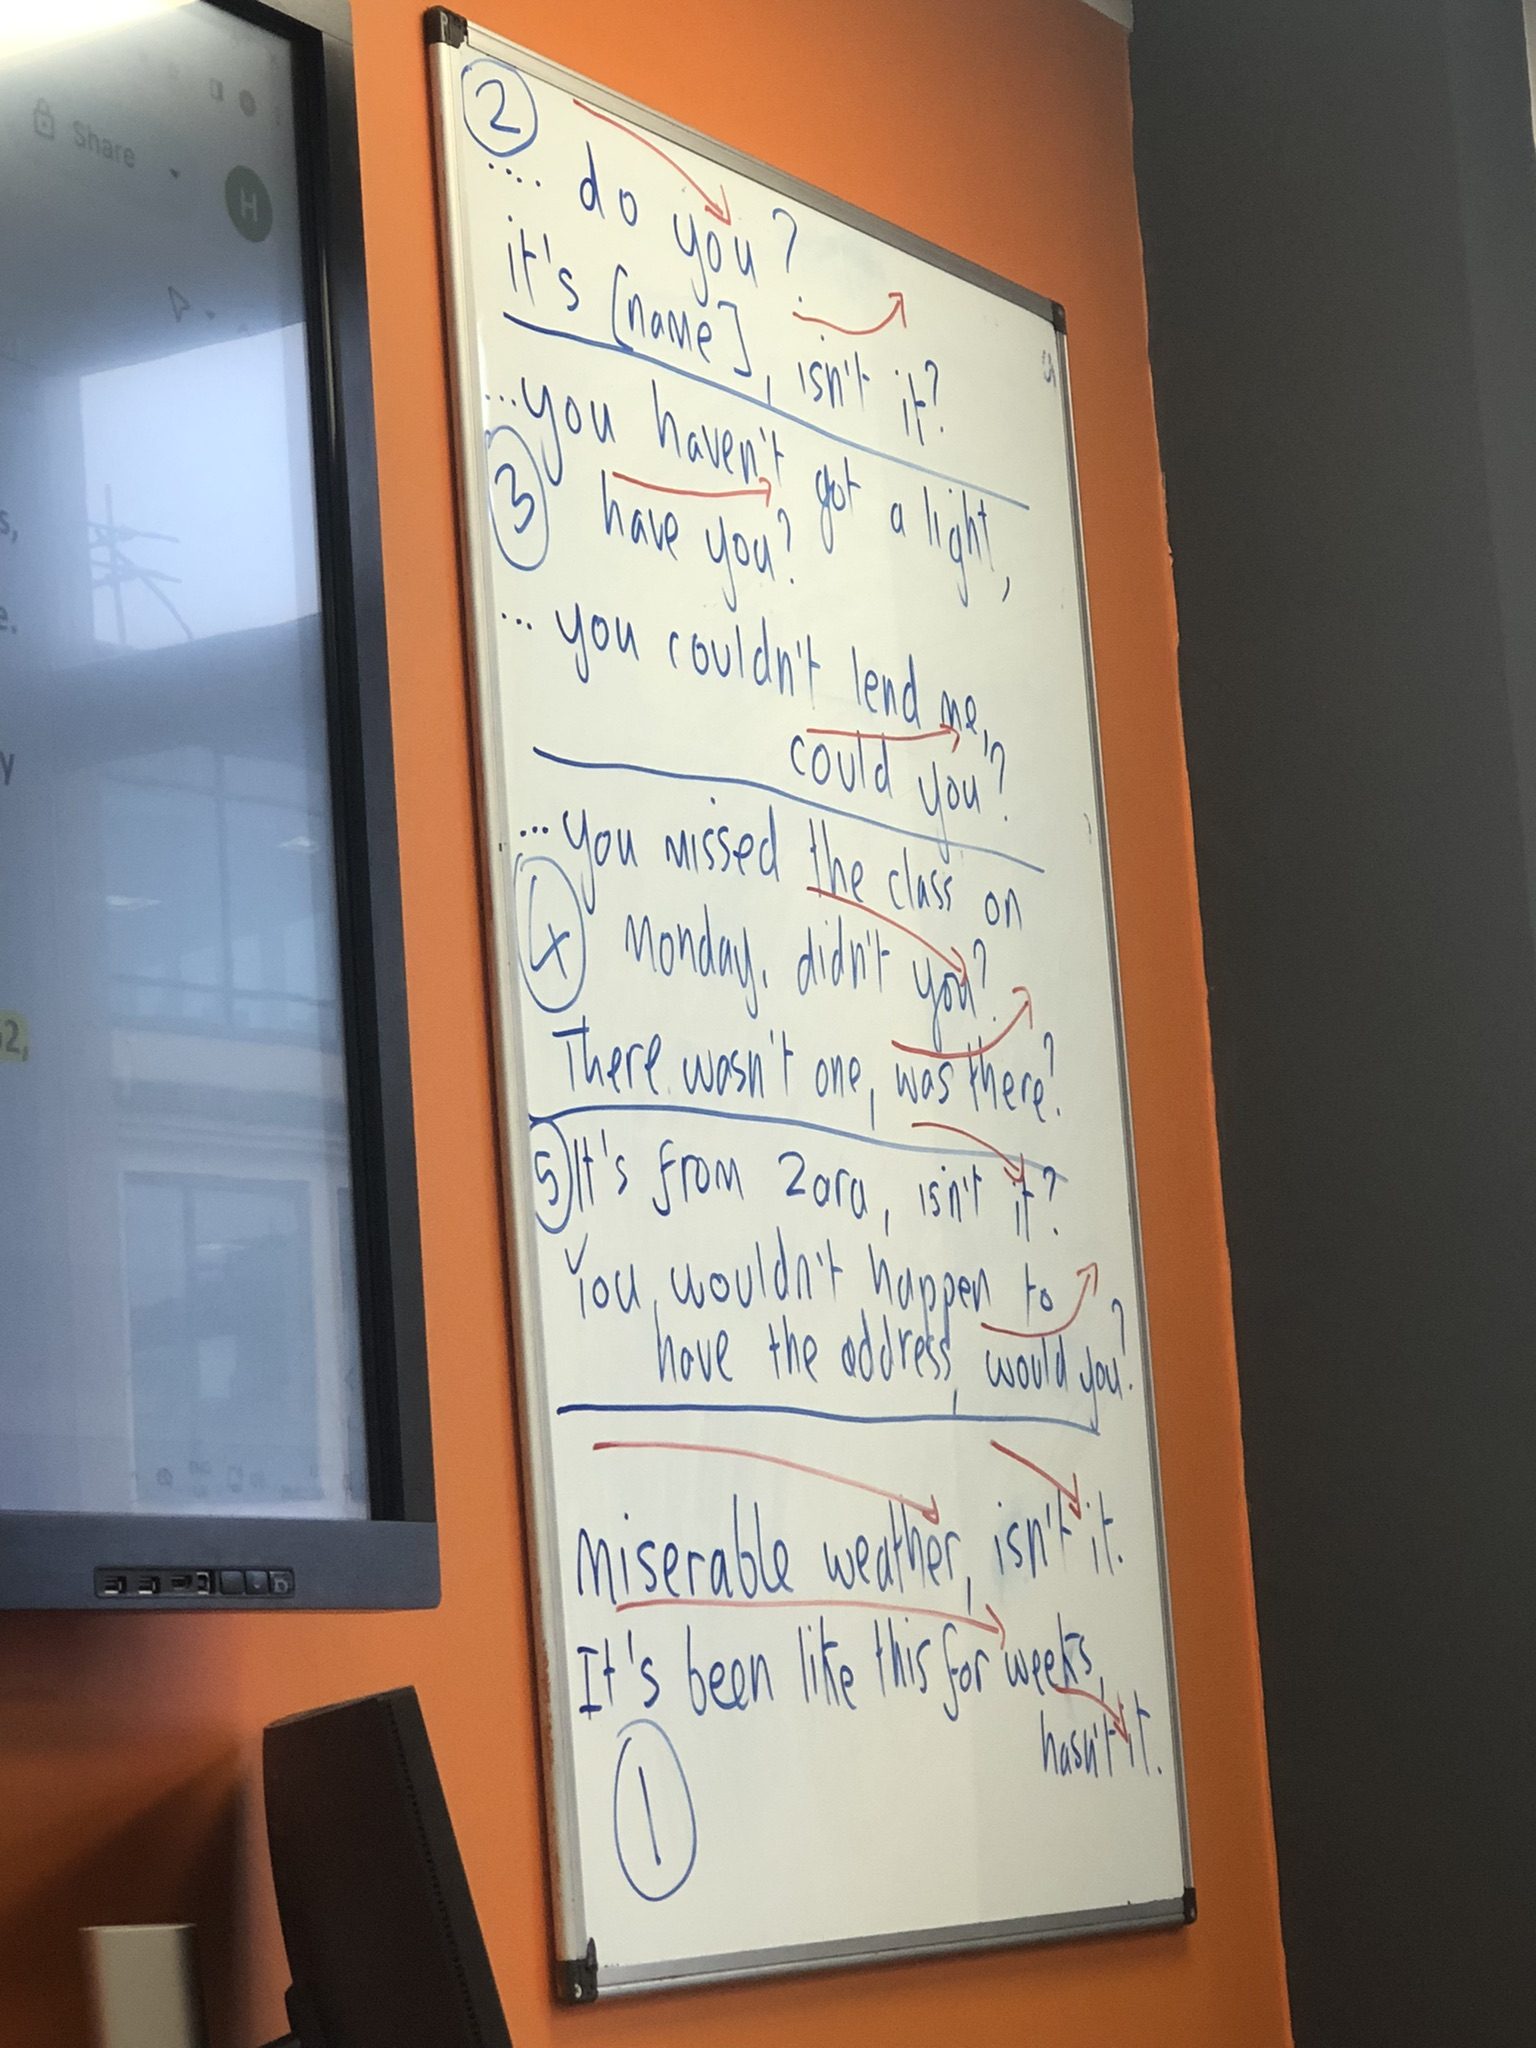 Share
H
s,
e.
y
2,
②
.... do you?
it's [name], isn't it?
...you haven't got a light,
③ have you?
... you couldn't lend me,
could you?
...you missed the class on
④ Monday. didn't you?
There wasn't one, was there?
⑤ It's from Zara, isn't it?
You wouldn't happen to
have the address, would you?
Miserable weather, isn't it.
It's been like this for weeks,
hasn't it.
①